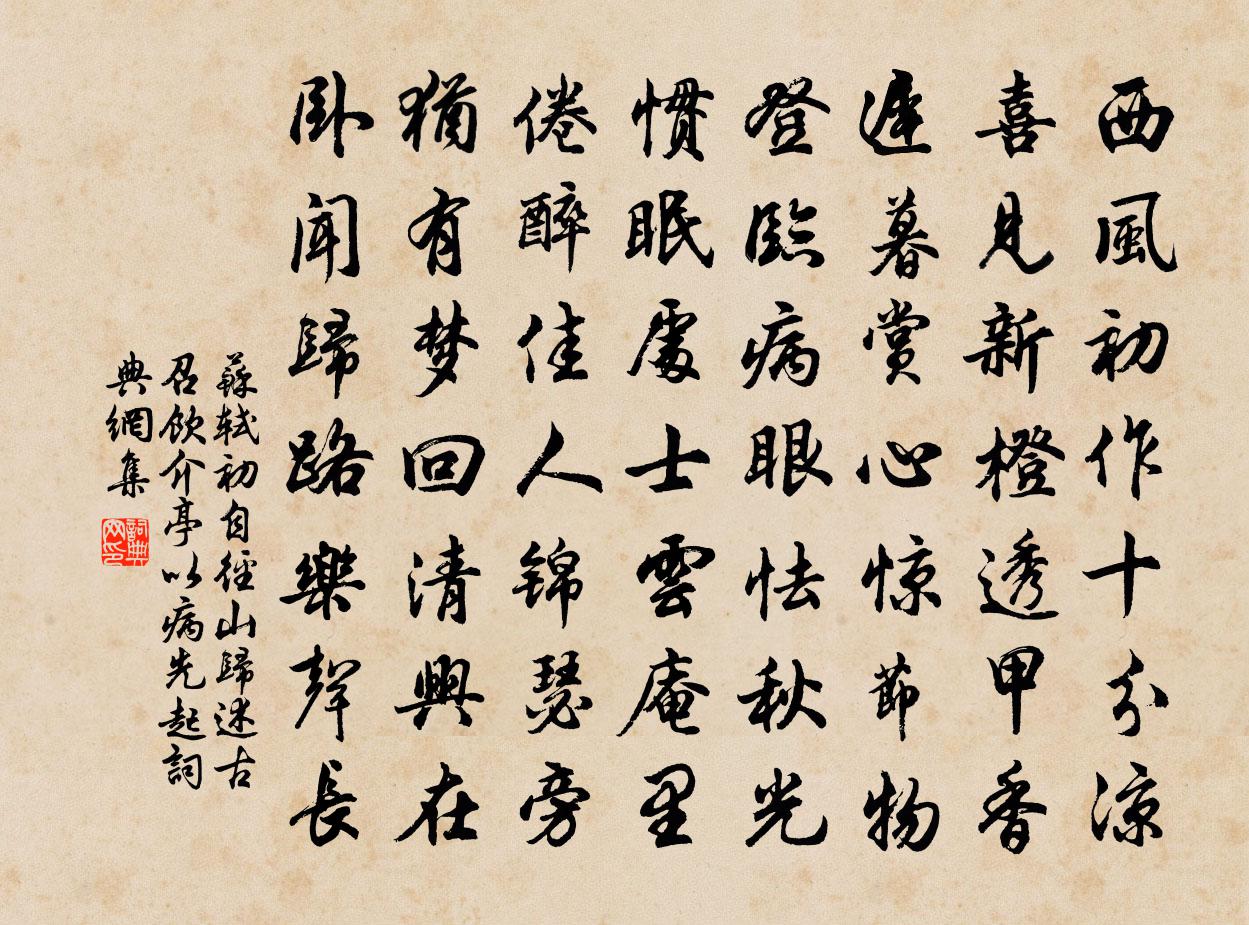 西風初作十分涼
喜見新橙透甲香
遲暮賞心惊節物
登臨病眼怯秋光
慣眠處士雲庵里
倦醉佳人锦瑟旁
猶有梦回清興在
卧闻歸路樂聲長
蘇軾初自徑山歸述古
召飲介亭以病先起詞
典網集
詞典網印